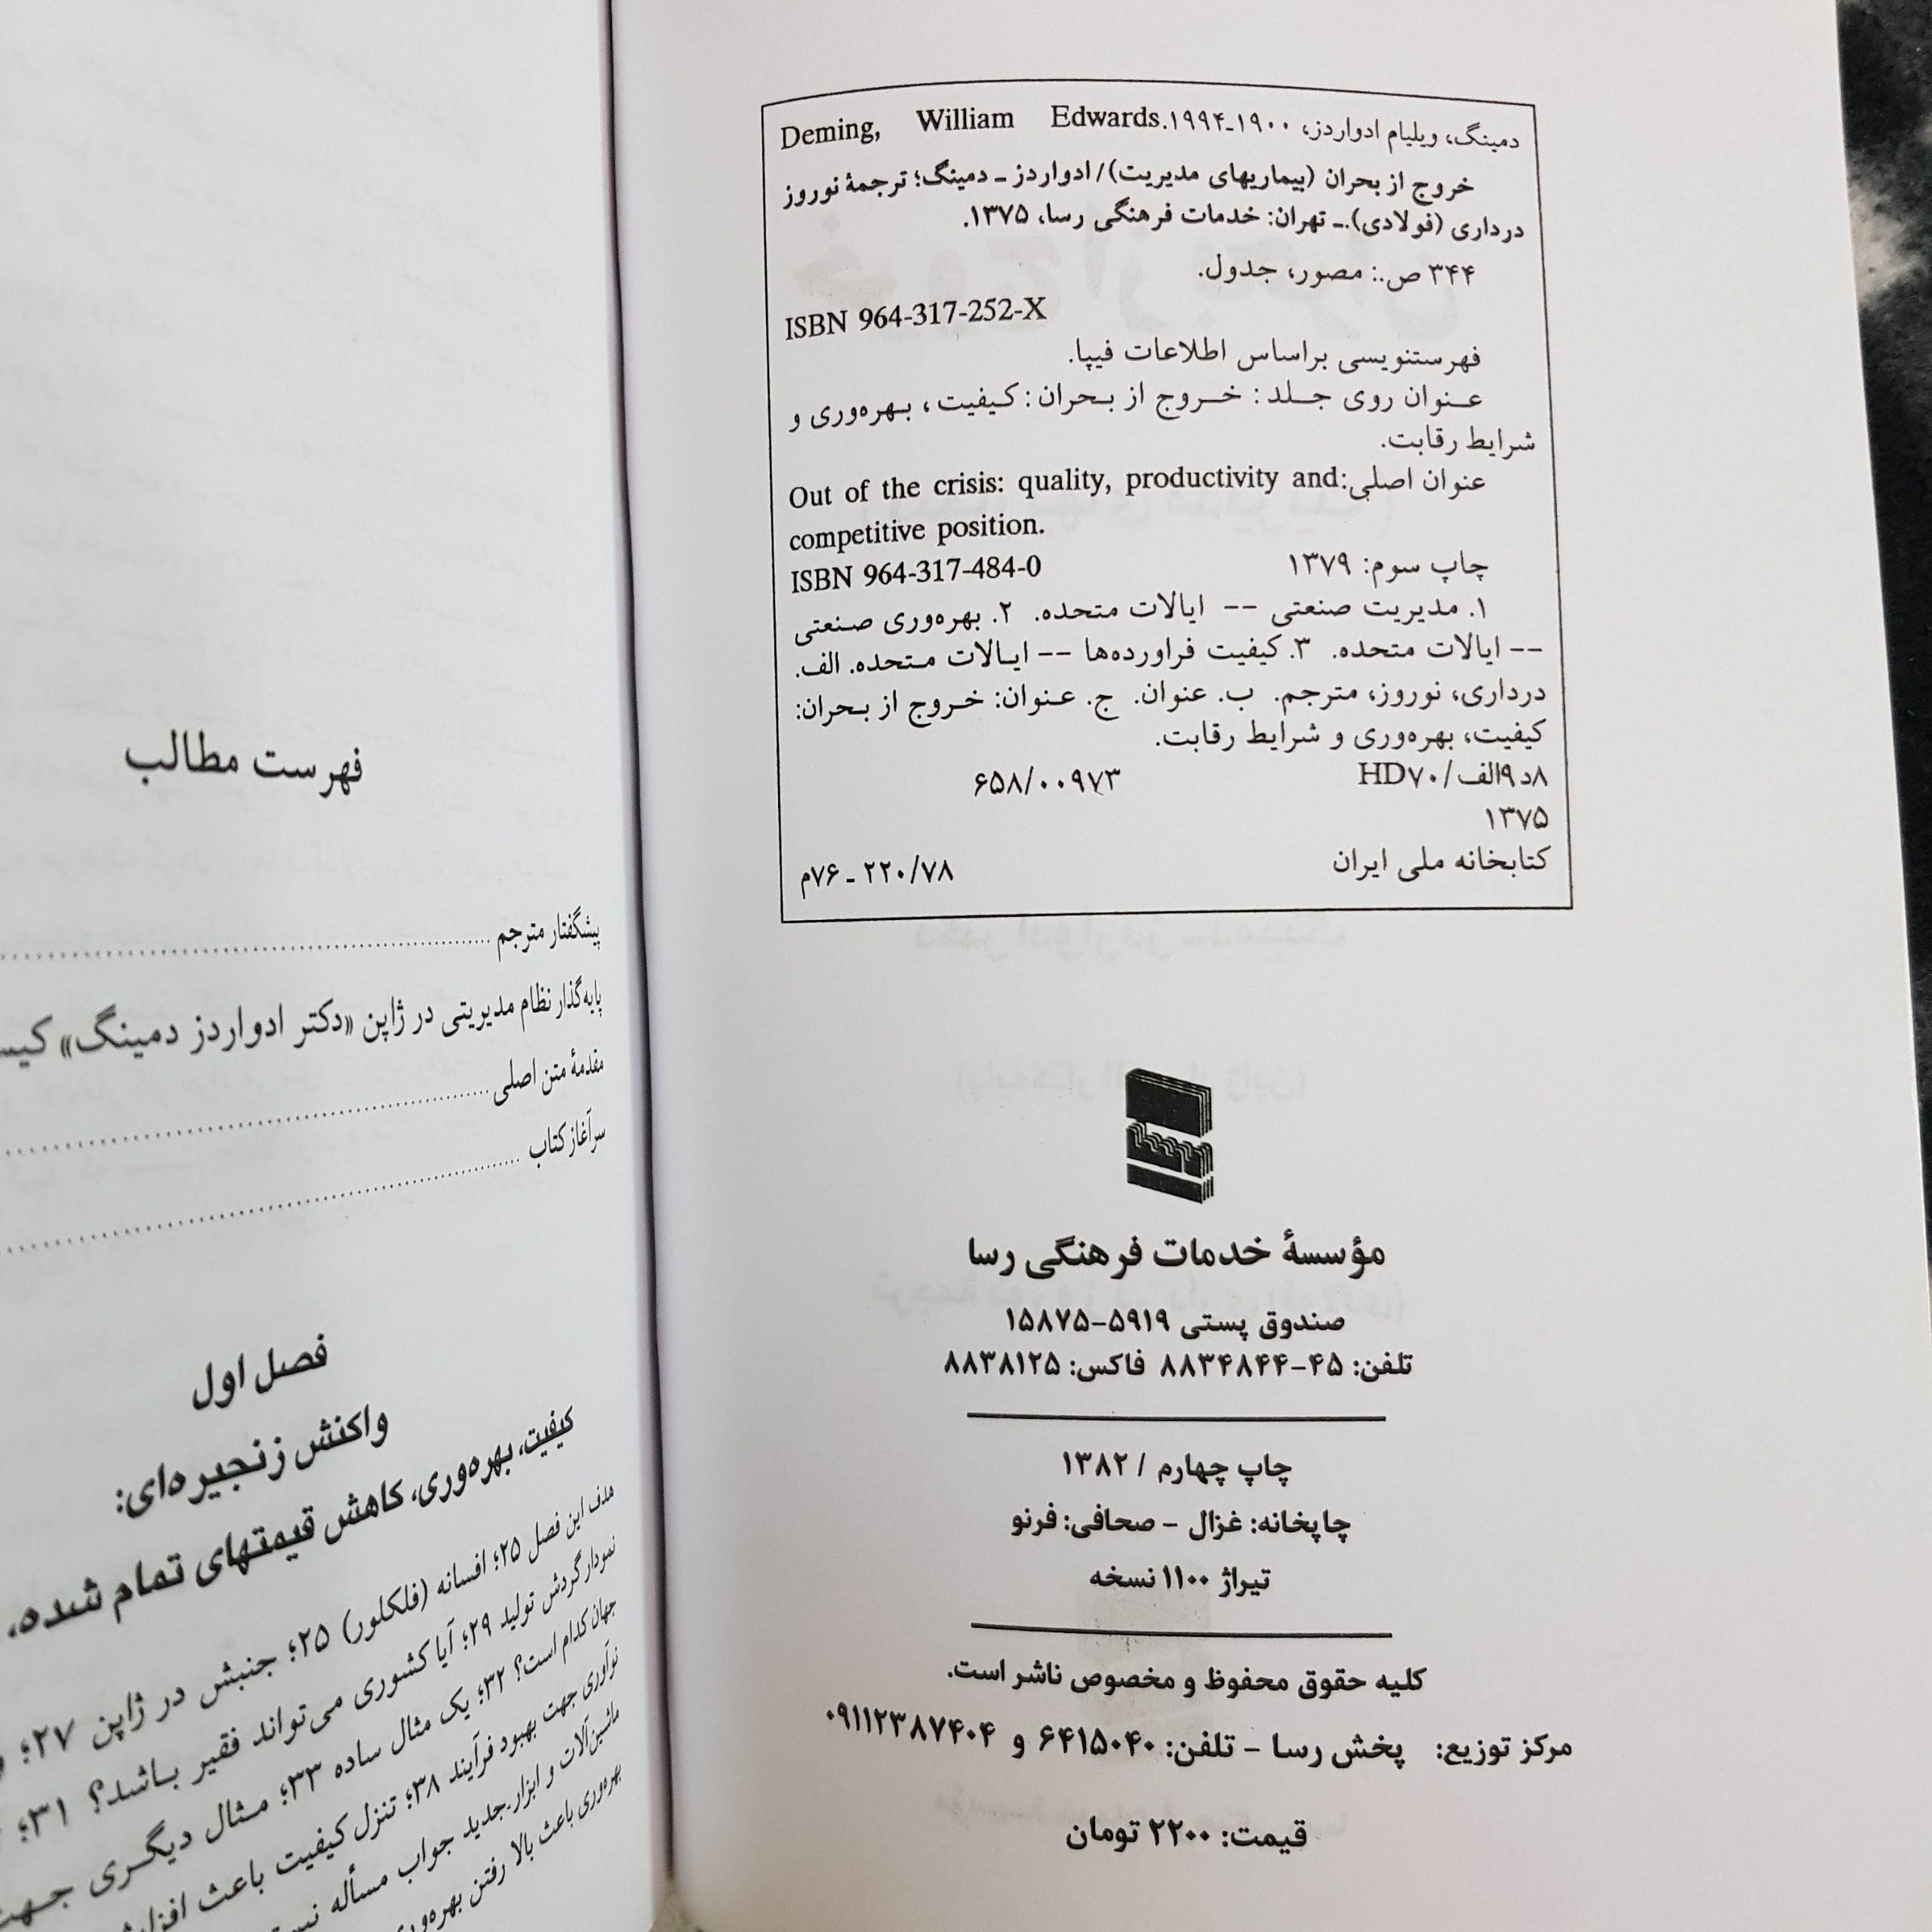 دمینگ، ویلیام ادواردز، ۱۹۰۰ـ۱۹۹۴.Deming, William Edwards
خروج از بحران (بیماریهای مدیریت)/ ادواردز ـ دمینگ؛ ترجمهٔ نوروز
درداری (فولادی).ـ تهران: خدمات فرهنگی رسا، ۱۳۷۵.
۳۴۴ ص.: مصور، جدول.
ISBN 964-317-252-X
فهرستنویسی براساس اطلاعات فیپا.
عنوان روی جلد: خروج از بحران: کیفیت، بهره‌وری و
شرایط رقابت.
عنوان اصلی:Out of the crisis: quality, productivity and
competitive position.
چاپ سوم: ۱۳۷۹ ISBN 964-317-484-0
۱. مدیریت صنعتی -- ایالات متحده. ۲. بهره‌وری صنعتی
-- ایالات متحده. ۳. کیفیت فراورده‌ها -- ایالات متحده. الف.
درداری، نوروز، مترجم. ب. عنوان. ج. عنوان: خروج از بحران:
کیفیت، بهره‌وری و شرایط رقابت.
۸د۹الف/HD۷۰ ۶۵۸/۰۰۹۷۳
۱۳۷۵
کتابخانه ملی ایران ۲۲۰/۷۸ ـ ۷۶م
مؤسسهٔ خدمات فرهنگی رسا
صندوق پستی ۵۹۱۹-۱۵۸۷۵
تلفن: ۴۵-۸۸۳۴۸۴۴ فاکس: ۸۸۳۸۱۲۵
چاپ چهارم / ۱۳۸۲
چاپخانه: غزال - صحافی: فرنو
تیراژ ۱۱۰۰ نسخه
کلیه حقوق محفوظ و مخصوص ناشر است.
مرکز توزیع: پخش رسا - تلفن: ۶۴۱۵۰۴۰ و ۰۹۱۱۲۳۸۷۴۰۴
قیمت: ۲۲۰۰ تومان
فهرست مطالب
پیشگفتار مترجم
پایه‌گذار نظام مدیریتی در ژاپن «دکتر ادواردز دمینگ»
مقدمهٔ متن اصلی
سرآغاز کتاب
فصل اول
واکنش زنجیره‌ای:
کیفیت، بهره‌وری، کاهش قیمتهای تمام شده،
هدف این فصل ۲۵؛ افسانه (فلکلور) ۲۵؛ جنبش در ژاپن ۲۷؛
نمودار گردش تولید ۲۹؛ آیا کشوری می‌تواند فقیر باشد؟ ۳۱؛
جهان کدام است؟ ۳۲؛ یک مثال ساده ۳۳؛ مثال دیگری
نوآوری جهت بهبود فرآیند ۳۸؛ تنزل کیفیت باعث
ماشین‌آلات و ابزار جدید جواب مسأله
بهره‌وری باعث بالا رفتن